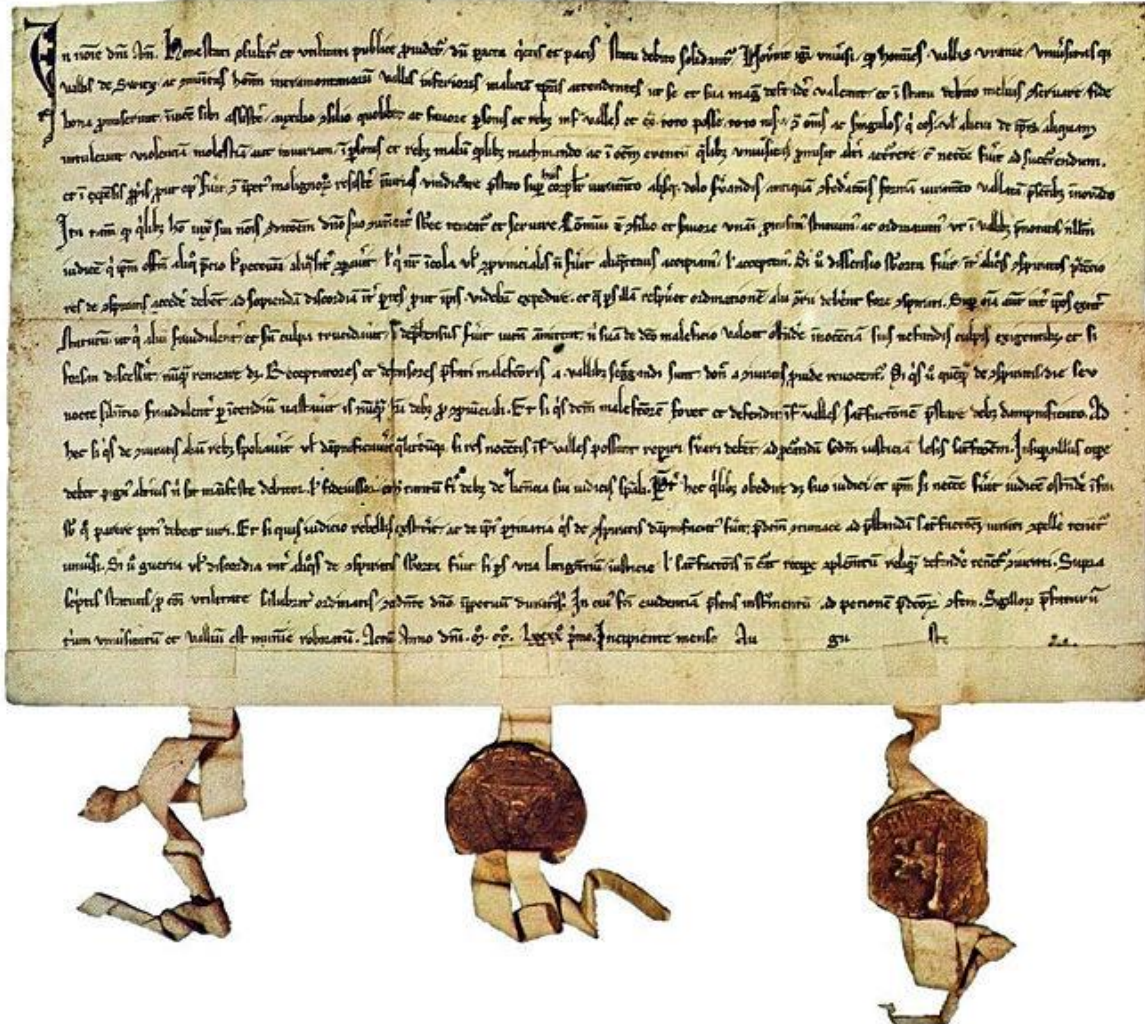 In noīe dn̄i Am̄. Honestati 9sulitur et utilitati publice ꝓuidetur dū pacta qͥetis et pacis statu debito solidantur Nouerint igͥ vniuˢi, qͩ homines vallis vranie vniuˢitas qꝫ
vallis de Switz ac munitas hominū intramontanorū vallis inferioris maliciā tꝑis attendentes ut se et sua magͥ defendere valeant et ī statu debito melius 9seruare fide
bona ꝓmiserunt inuicē sibi assistere auxilio 9silio quolibet ac fauore ꝑsonis et rebꝫ infͣ valles et exͣ toto posse toto nisu 9ͣ om̄s ac singulos qͥ eis vl̕ alicui de ip̄is aliquam
intulerint violenciā molestiā aut iniuriam ī ꝑsonis et rebꝫ malū qͦdlibet machinando ac ī om̄ē euentū qͥlibꝫ vniuˢitas ꝓmisit altͥ accurrere cū necesse fuerit ad succurrendum
et ī expensis ꝓpͥis ꝓut opꝰ fuerit 9ͣ īpetꝰ malignoꝝ resistere iniurias vindicare pͥstito suꝑ hiis corꝑaliter iuramento absqꝫ dolo seruandis antiquam 9federationis formā iuramento vallatā pͥsentibꝫ innouando
Ita tamē qͩ qͥlibꝫ homo iuxͣ sui nominis 9ditionem dn̄o suo 9ueniēter subesse teneatur et seruire Cōmuni ē 9silio et fauore vnaīmi ꝓmisimꝰ statuimꝰ ac ordinauimꝰ vt ī vallibꝫ pͥnotatis nullum
iudicē qͥ ip̄m officiū aliqͦ pͥcio vl̕ peccunia aliqͣliter 9ꝑauerit vl̕ qͥ nr̄ īcola vl̕ 9ꝓuincialis nō fuerit aliqͣtenus accipiamꝰ vl̕ acceptamꝰ. Si ū dissensio suborta fuerit inter aliqͦs 9spiratos pͥdenciores
de 9spiratis accedere debent ad sopiendā discordiā inter partes ꝓut ip̄is videbitur expedire et qͣ pars illā respueret ordinationē alii 9ͣrii deberent fore 9spirati. Suꝑ om̄ia aut inter ip̄os extitit
statutū ut qͥ aliū fraudulenter et sine culpa trucidauerit si depͥhensus fuerit vitā ammittat nisi suā de dc̄o maleficio valeat ostendere innocenciā suis nefandis culpis exigentibꝫ et si
forsan discesserit nunqͣm remeare debet Receptatores et defensores pͥfati malefactoris a vallibꝫ segregandi sunt donec a 9iuratis ꝓuide reuocentur. Si qͥs ū quemqꝫ de 9spiratis die seu
nocte silentio fraudulenter ꝑ incendiū vastauerit is nunqͣm haberi debet ꝓ 9ꝓuinciali. Et si qͥs dictū malefactorē fouet et defendit infͣ valles satisfactionē pͥstare debet dampnificato. Ad
hec si qͥs de 9iuratis aliū rebꝫ spoliauerit vl̕ dampnificauerit qͣlitercunqꝫ si res nocentis infͣ valles possunt reperiri seruari debent ad ꝓcurandā secundum iusticiā lesis satisfactionem. Insuꝑ nullus capere
debet pignꝰ alterius nisi sit manifeste debitor vl̕ fideiussor et hoc tantū fieri debet de licencia sui iudicis speciali. Pͥter hec qͥlibet obedire debet suo iudici et ip̄m si necesse fuerit iudicē ostendere infͣ
sub qͦ parere potius debeat iuri. Et si quis iudicio rebellis extiterit ac de ip̄iꝰ ꝑtinatia qͥs de 9spiratis dampnificatus fuerit pͥdictum 9tumacem ad pͥstandā satisfactionem iurati 9pellere tenentur
vniuˢi. Si ū guerra vl̕ discordia inter aliqͦs de 9spiratis suborta fuerit si pars vna litigantiū iusticie vl̕ satisfactionis nō curat recipere 9plementū reliquā defendere tenentur 9iurati. Supra
scriptis statutis ꝓ cōi vtilitate salubriter ordinatis 9cedente dn̄o īperpetuū duraturis. In cuiꝰ facti euidentiā pͥsens instrumentū ad petitionē pͥdictoꝝ 9fectum Sigilloꝝ pͥfatarū
triū vniuˢitatū et valliū est munimine roboratū. Actū Anno dn̄i. M. CC. LXXXX pͥmo. Incipiente mense Au gu sto